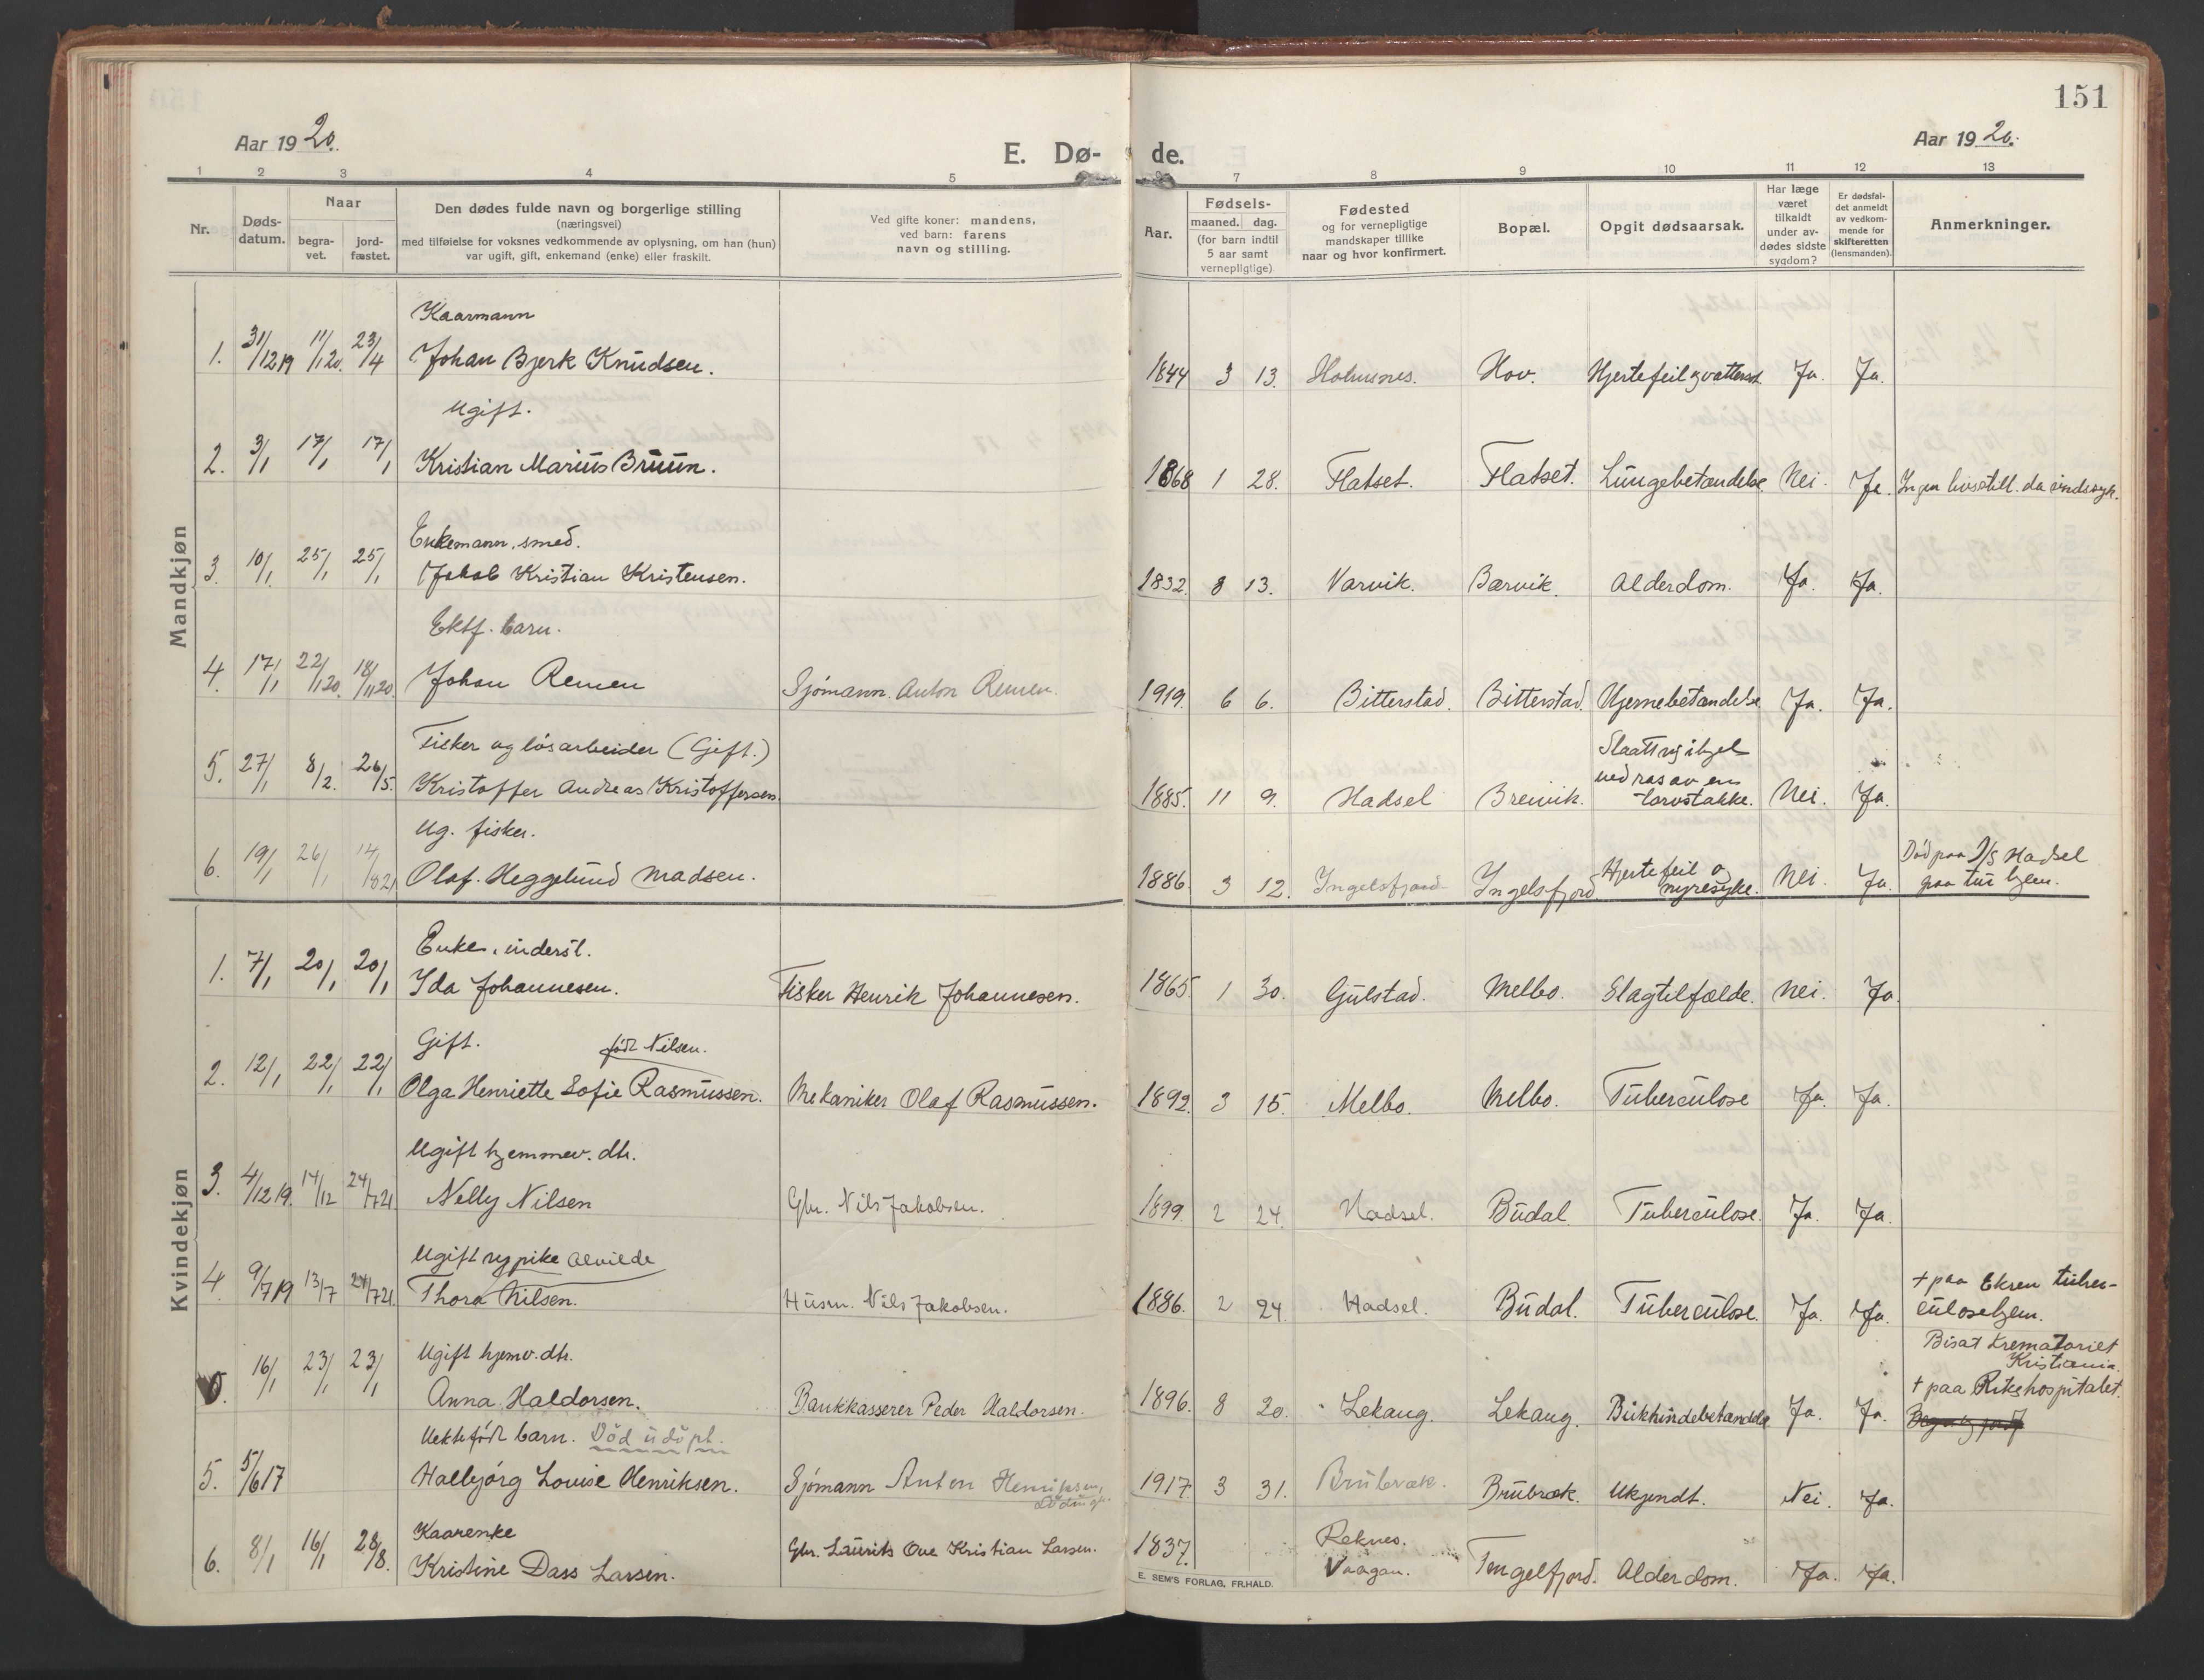 151
Aar 1920.
E. Dø-
de.
Aar 1920.
1 2 3 4 5 7 8 9 10 11 12 13
Nr.
Døds-
datum.
Naar
begra-
vet.
jord-
fæstet.
Den dødes fulde navn og borgerlige stilling
(næringsvei)
med tilføielse for voksnes vedkommende av oplysning, om han (hun)
var ugift, gift, enkemand (enke) eller fraskilt.
Ved gifte koner: mandens,
ved barn: farens
navn og stilling.
Aar.
Fødsels-
maaned. dag.
(for barn indtil
5 aar samt
vernepligtige)
Fødested
og for vernepligtige
mandskaper tillike
naar og hvor konfirmert.
Bopæl.
Opgit dødsaarsak.
Har læge
været
tilkaldt
under av-
dødes sidste
sygdom?
Er dødsfal-
det anmeldt
av vedkom-
mende for
skifteretten
(lensmanden).
Anmerkninger.
Mandkjøn
Kaarmann
1. 31/12 19 11/1 20. 23/4 Johan Bjerk Knudsen. 1844 3 13. Holmsnes. Hov. Hjertefeil og vatters. Ja. Ja.
Ugift.
2. 3/1 17/1 17/1 Kristian Marius Bruun. 1868 1 28. Flatset. Flatset. Lungebetændelse. Nei. Ja. Ingen da sindssyk.
Enkemann, smed.
3. 10/1 25/1 25/1 Jakob Kristian Kristensen. 1832. 8 13. Varvik. Barvik. Alderdom. Ja. Ja.
Ektf. barn.
4. 17/1 22/1 20. 18/11 20. Johan Remen Sjømann. Anton Remen. 1919. 6 6. Bitterstad. Bitterstad. Hjernebetændelse Ja. Ja.
Fisker og løsarbeider (Gift.)
Slaatt sig ihjel
ved ras av en
5. 27/1 8/2. 26/5. Kristoffer Andreas Kristoffersen. 1885. 11 9. Hadsel Breivik. torvstakke. Nei. Ja.
Ug. fisker.
Død paa D/S Hadsel
6. 19/1 26/1 14/8 21 Olaf Heggelund Madsen. 1886. 3 12. Ingelsfjord Ingelsfjord. Hjertefeil og
nyresyke. Nei. Ja. paa tur hjem.
Kvindekjøn
Enke, inderst.
1. 7/1 20/1 20/1 Ida Johannesen. Fisker Henrik Johannesen. 1865. 1 30. Gulstad. Melbo. Slagtilfælde. Nei. Ja.
Gift. født Nilsen.
2. 12/1 22/1 22/1 Olga Henriette Sofie Rasmussen. Mekaniker Olaf Rasmussen. 1892. 3 15. Melbo. Melbo. Tuberculose Ja. Ja.
Ugift hjemmev. dtr.
3. 4/12 19. 14/12 24/7 21. Nelly Nilsen Gbr. Nils Jakobsen. 1899. 2 24. Hadsel. Budal. Tuberculose. Ja. Ja.
Ugift sypike Alvilde
+ paa Ekren tuber-
4. 9/7 19 13/7 24/7 21. Thora Nilsen. Husm. Nils Jakobsen. 1886. 2 24. Hadsel. Budal. Tuberculose. Ja. Ja. culosehjem.
Ugift hjemv. dtr.
Bisat Krematoriet
Kristiania.
16/1 23/1 23/1 Anna Haldorsen. Bankkasserer Peder Haldorsen. 1896. 8 20. Lekang. Lekang. Bukhindebetændelse Ja. Ja. + paa Rikshospitalet.
Uektefødt barn. Død udøpt.
5. 5/6 17 Halbjørg Louise Henriksen. Sjømann Anton Henriksen, 1917. 3 31. Brubræk. Brubræk. Ukjendt. Nei. Ja.
Kaarenke
6. 8/1 16/1 28/8. Kristine Dass Larsen. Gbr. Laurits Ove Kristian Larsen. 1837. Reknes.
Vaagan. Tengelfjord. Alderdom. Ja. Ja.
E. SEM'S FORLAG, FR.HALD.